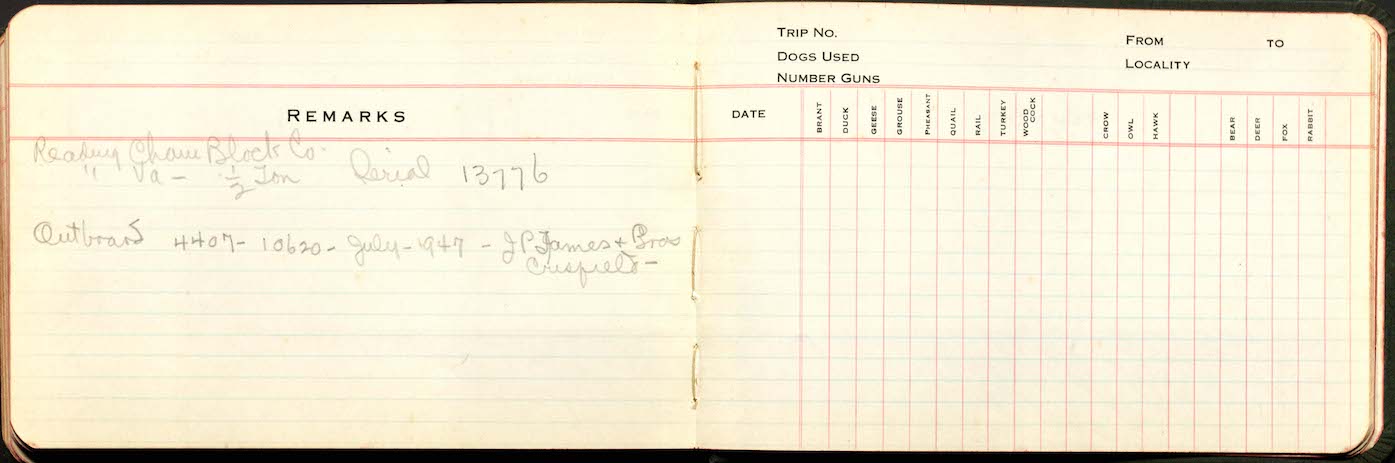 REMARKS
Reading Chain Block Co.
" Va - 1/2 Ton Serial 13776
Outboard 4407 - 10620 - July - 1947 - J P James & Bros
Crisfield -
TRIP NO. FROM TO
DOGS USED LOCALITY
NUMBER GUNS
DATE BRANT DUCK GEESE GROUSE PHEASANT QUAIL RAIL TURKEY WOOD COCK CROW OWL HAWK BEAR DEER FOX RABBIT